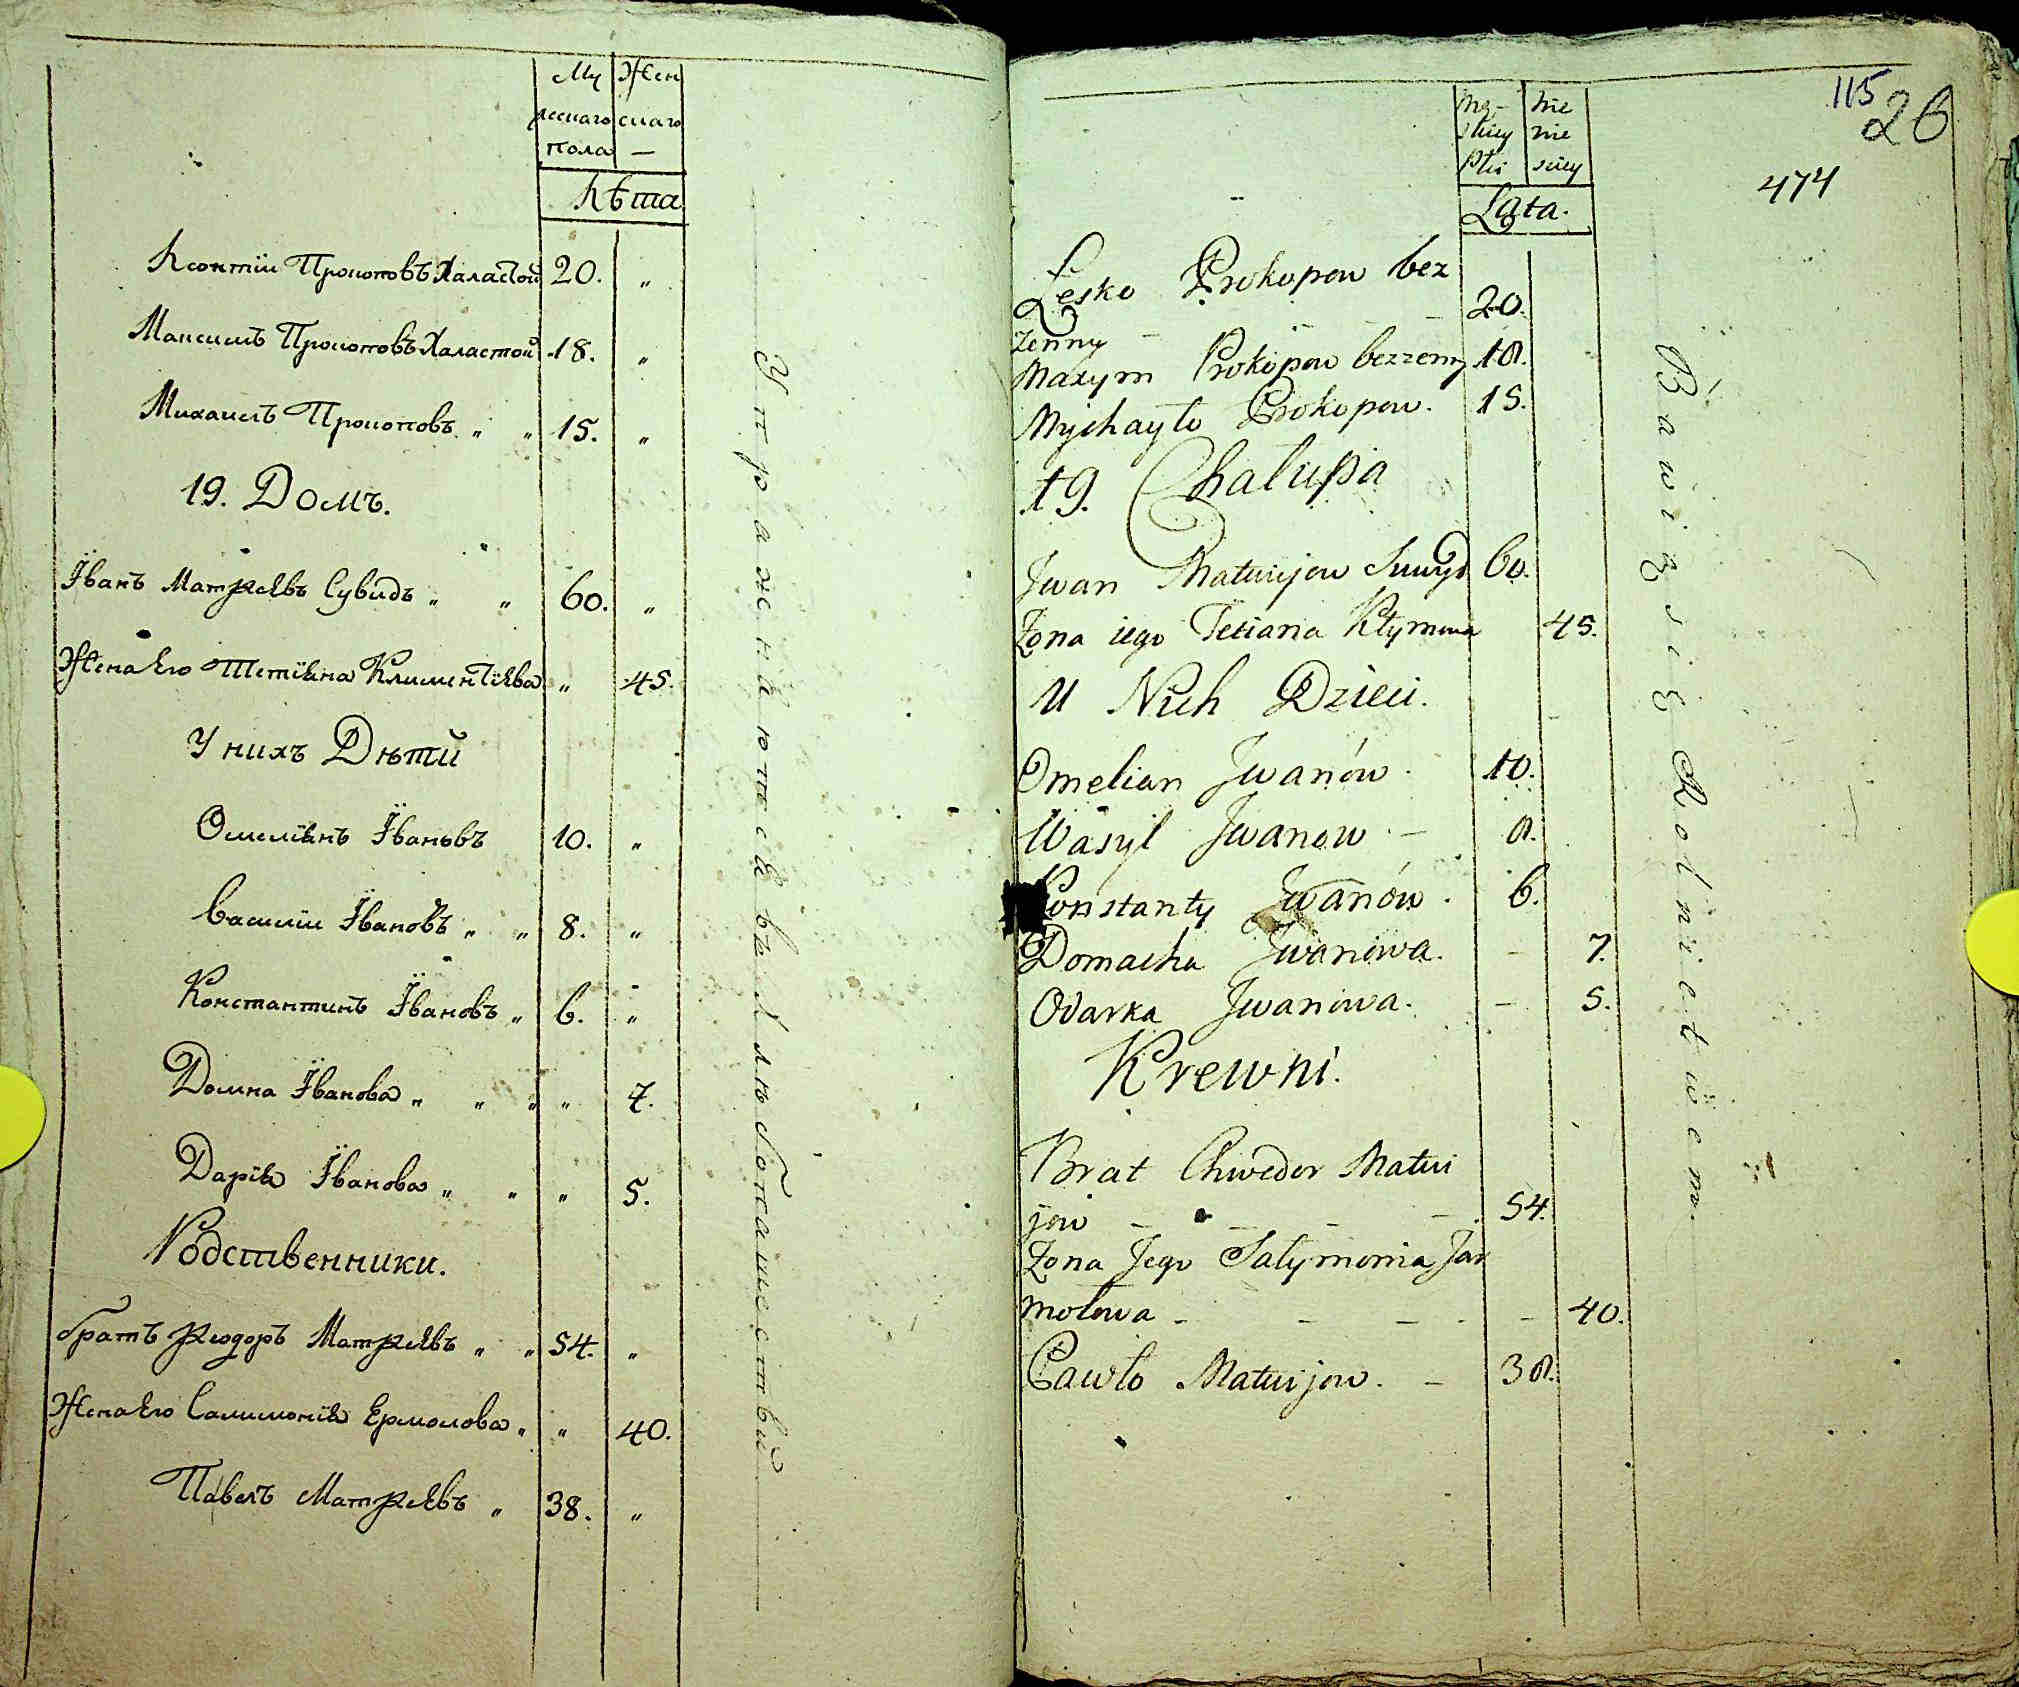 Му
жескаго
пола
Жен
скаго
—
Лѣта
Леонтїи Прокоповъ Халастой 20. „
Максимъ Прокоповъ Халастой 18. „
Михаилъ Прокоповъ „ „ 15. „
19. Домъ.
Їванъ Матѳѣевъ Сувидъ „ „ 60. „
Жена Его Тетїяна Климентїева „ 45.
У нихъ Дѣтй
Омелїянъ Ївановъ 10. „
Василїи Ївановъ „ „ 8. „
Константинъ Ївановъ „ 6. „
Домна Їванова „ „ „ „ 7.
Дарїя Їванова „ „ „ 5.
Родственники.
братъ Ѳеодоръ Матѳѣевъ „ „ 54. „
Жена Его Салимонїя Ермолова „ „ 40.
Павелъ Матѳѣевъ „ 38. „
Упражнаются в хлѣбопашествй
115
26
474
Mę-
skiey
Płci
Lata.
Lesko Prokopow bez
żenny — 20.
Maxym Prokopow bezżenny 18.
Mychayło Prokopow. 15.
19. Chałupa
Jwan Matwijow Suwyd 60.
Żona iego Tetiana Kłymowa 45.
U Nich Dzieci.
Omelian Jwanów. 10.
Wasyl Jwanow — 8.
Konstanty Jwanów. 6.
Domacha Jwanowa. — 7.
Odarka Jwanowa. — 5.
Krewni.
Brat Chwedor Matwi
jow — — — — 54.
Żona Jego Sałymonia Jar
mołowa — — — — 40.
Pawło Matwijow. — 38.
Bawią się Rolnictwem.